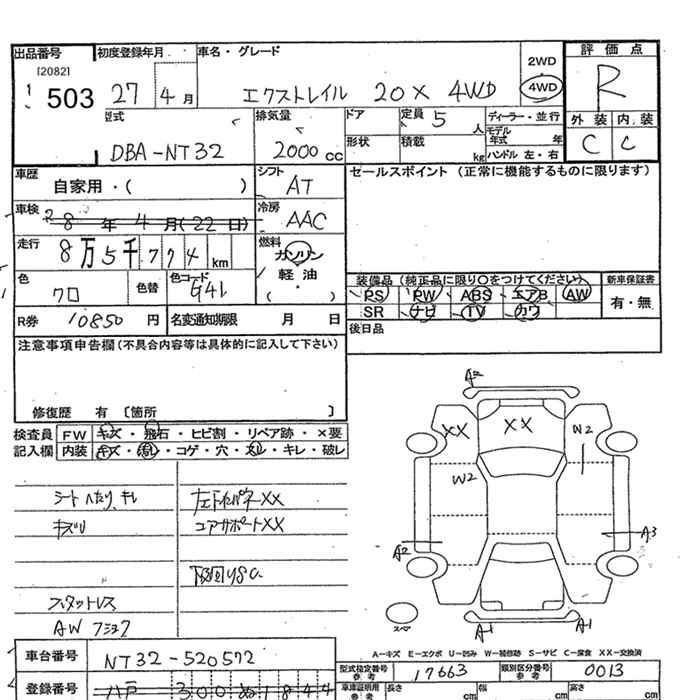 出品番号 初度登録年月 車名・グレード 2WD 評価点
[2082]
503 27 4月 エクストレイル 20X 4WD 4WD R
型式 排気量 ドア 定員 5人 ディーラー・並行 外装 内装
モデル年式 年
DBA-NT32 2000cc 形状 積載 kg ハンドル 左・右 C C
車歴 シフト セールスポイント (正常に機能するものに限ります)
自家用・( ) AT
車検 冷房
28年4月(22日) AAC
走行 燃料
8万5千774km ガソリン
軽油
・
( )
色 色替 色コード 装備品(純正品に限り○をつけてください) 新車保証書
クロ G41 PS PW ABS エアB AW 有・無
SR ナビ TV カワ
R券 10850円 名変通知期限 月 日 後日品
注意事項申告欄(不具合内容等は具体的に記入して下さい)
修復歴 有 [箇所 ]
検査員 FW キズ・飛石・ヒビ割・リペア跡・×要
記入欄 内装 キズ・汚れ・コゲ・穴・スレ・キレ・破レ
シートヘたり、キレ
キズU
スタットレス
AW フシヨク
XX
コアサポートXX
A2
XX XX W2
W2
A2 A3
スペア
A1 A1
A-キズ E-エクボ U-凹み W-補修跡 S-サビ C-腐食 XX-交換済
車台番号 NT32-520572
型式指定番号 参考 17663 類別区分番号 参考 0013
登録番号 八戸 300 ぬ 1844
車庫証明用 参考 長さ cm 幅 cm 高さ cm